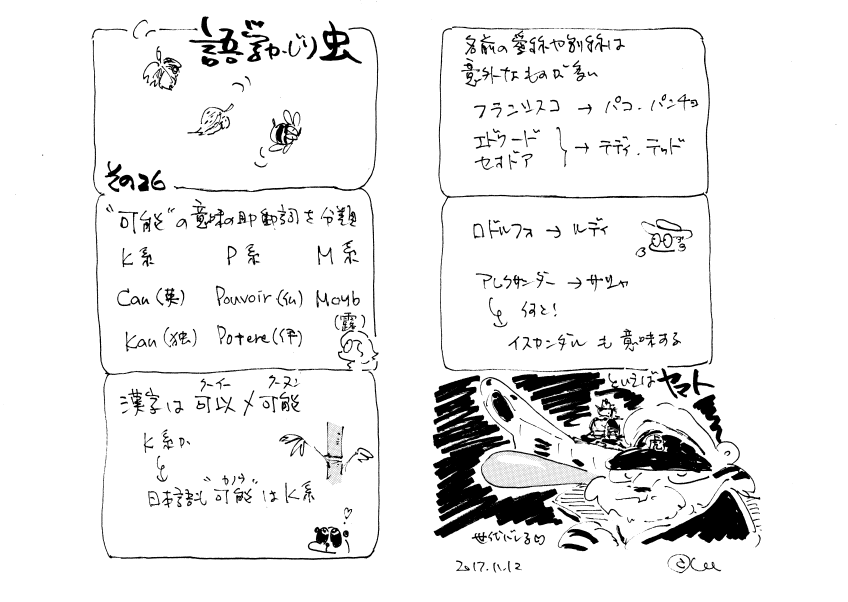 語学かじり虫
その26
"可能"の意味の助動詞を分類
K系 P系 M系
Can(英) Pouvoir(仏) Мочь(露)
Kan(独) Potere(伊)
クーイー クーヌン
漢字は 可以 / 可能
K系か
カノウ
日本語も"可能"はK系
名前の愛称や別称は
意外なものが多い
フランシスコ → パコ・パンチョ
エドワード
セオドア
→ テディ・テッド
ロドルフォ → ルディ
アレクサンダー → サシャ
何と!
イスカンダル も 意味する
といえば ヤマト
虎
世代バレる
2017.11.12